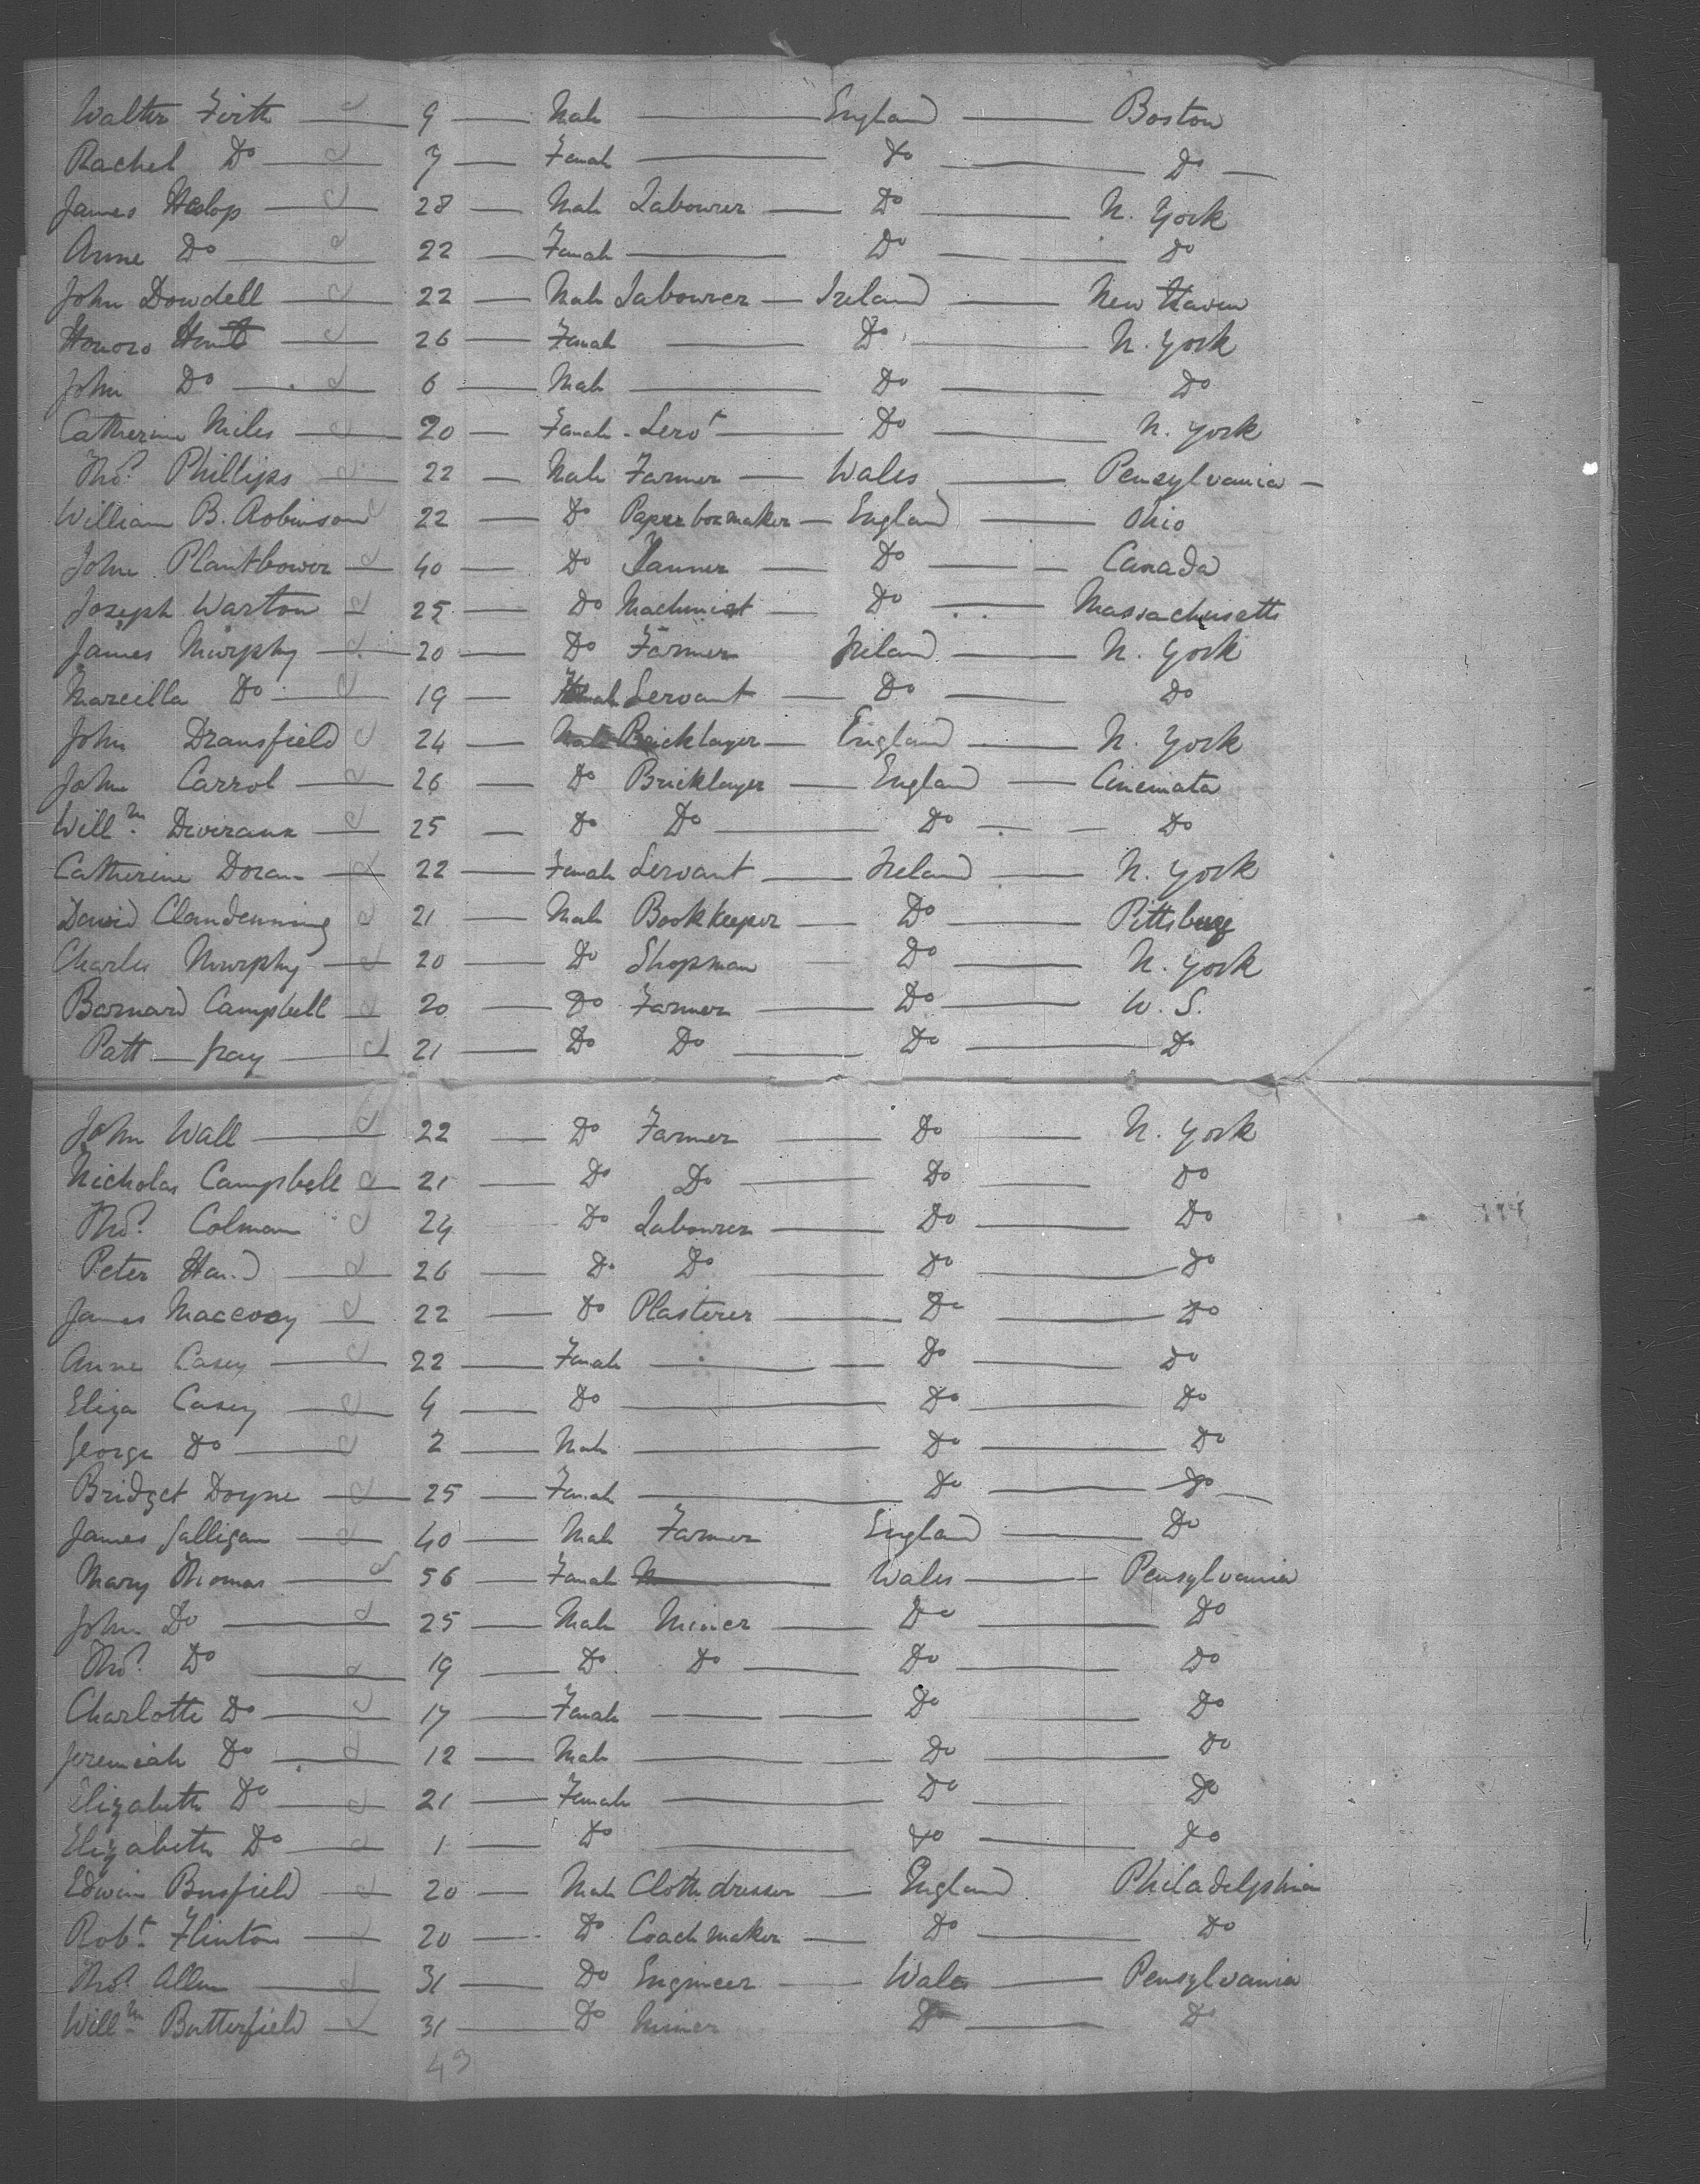 Walter Firth 9 Male England Boston
Rachel Do 7 Female Do Do
James Heslop 28 Male Labourer Do N. York
Anne Do 22 Female Do Do
John Dowdell 22 Male Labourer Ireland New Haven
Honoro Hunt 26 Female Do N. York
John Do 6 Male Do Do
Catherine Miles 20 Female Servt Do N. York
Thos. Phillips 22 Male Farmer Wales Pensylvania
William B. Robinson 22 Do Paper box maker England Ohio
John Plantbower 40 Do Tanner Do Canada
Joseph Warton 25 Do Machinist Do Massachusetts
James Murphy 20 Do Farmer Ireland N. York
Marcilla Do 19 Female Servant Do Do
John Dransfield 24 Male Bricklayer England N. York
John Carrol 26 Do Bricklayer England Cincinnata
Willm. Diveraux 25 Do Do Do Do
Catherine Doran 22 Female Servant Ireland N. York
David Clandenning 21 Male Bookkeeper Do Pittsburg
Charles Murphy 20 Do Shopman Do N. York
Barnard Campbell 20 Do Farmer Do U. S.
Patt Gray 21 Do Do Do Do
John Wall 22 Do Farmer Do N. York
Nicholas Campbell 21 Do Do Do Do
Thos. Colman 24 Do Labourer Do Do
Peter Hand 26 Do Do Do Do
James Maccvoy 22 Do Plasterer Do Do
Anne Casey 22 Female Do Do
Eliza Casey 4 Do Do Do
George Do 2 Male Do Do
Bridget Doyne 25 Female Do Do
James Galligan 40 Male Farmer England Do
Mary Thomas 56 Female Wales Pensylvania
John Do 25 Male Miner Do Do
Thos. Do 19 Do Do Do Do
Charlotte Do 17 Female Do Do
Jeremiah Do 12 Male Do Do
Elizabeth Do 21 Female Do Do
Elizabeth Do 1 Do Do Do
Edwin Busfield 20 Male Cloth dresser England Philadelphia
Robt. Flinton 20 Do Coach maker Do Do
Thos. Allen 31 Do Engineer Wales Pensylvania
Willm. Butterfield 31 Do Miner Do Do
43